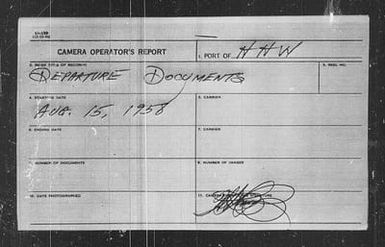 CAMERA OPERATOR'S REPORT
1. PORT OF HHW
2. MAIN TITLE OF RECORDS
3. REEL NO.
DEPARTURE DOCUMENTS
4. STARTING DATE
5. CARRIER
AUG. 15, 1958
6. ENDING DATE
7. CARRIER
8. NUMBER OF DOCUMENTS
9. NUMBER OF IMAGES
10. DATE PHOTOGRAPHED
11. CAMERA